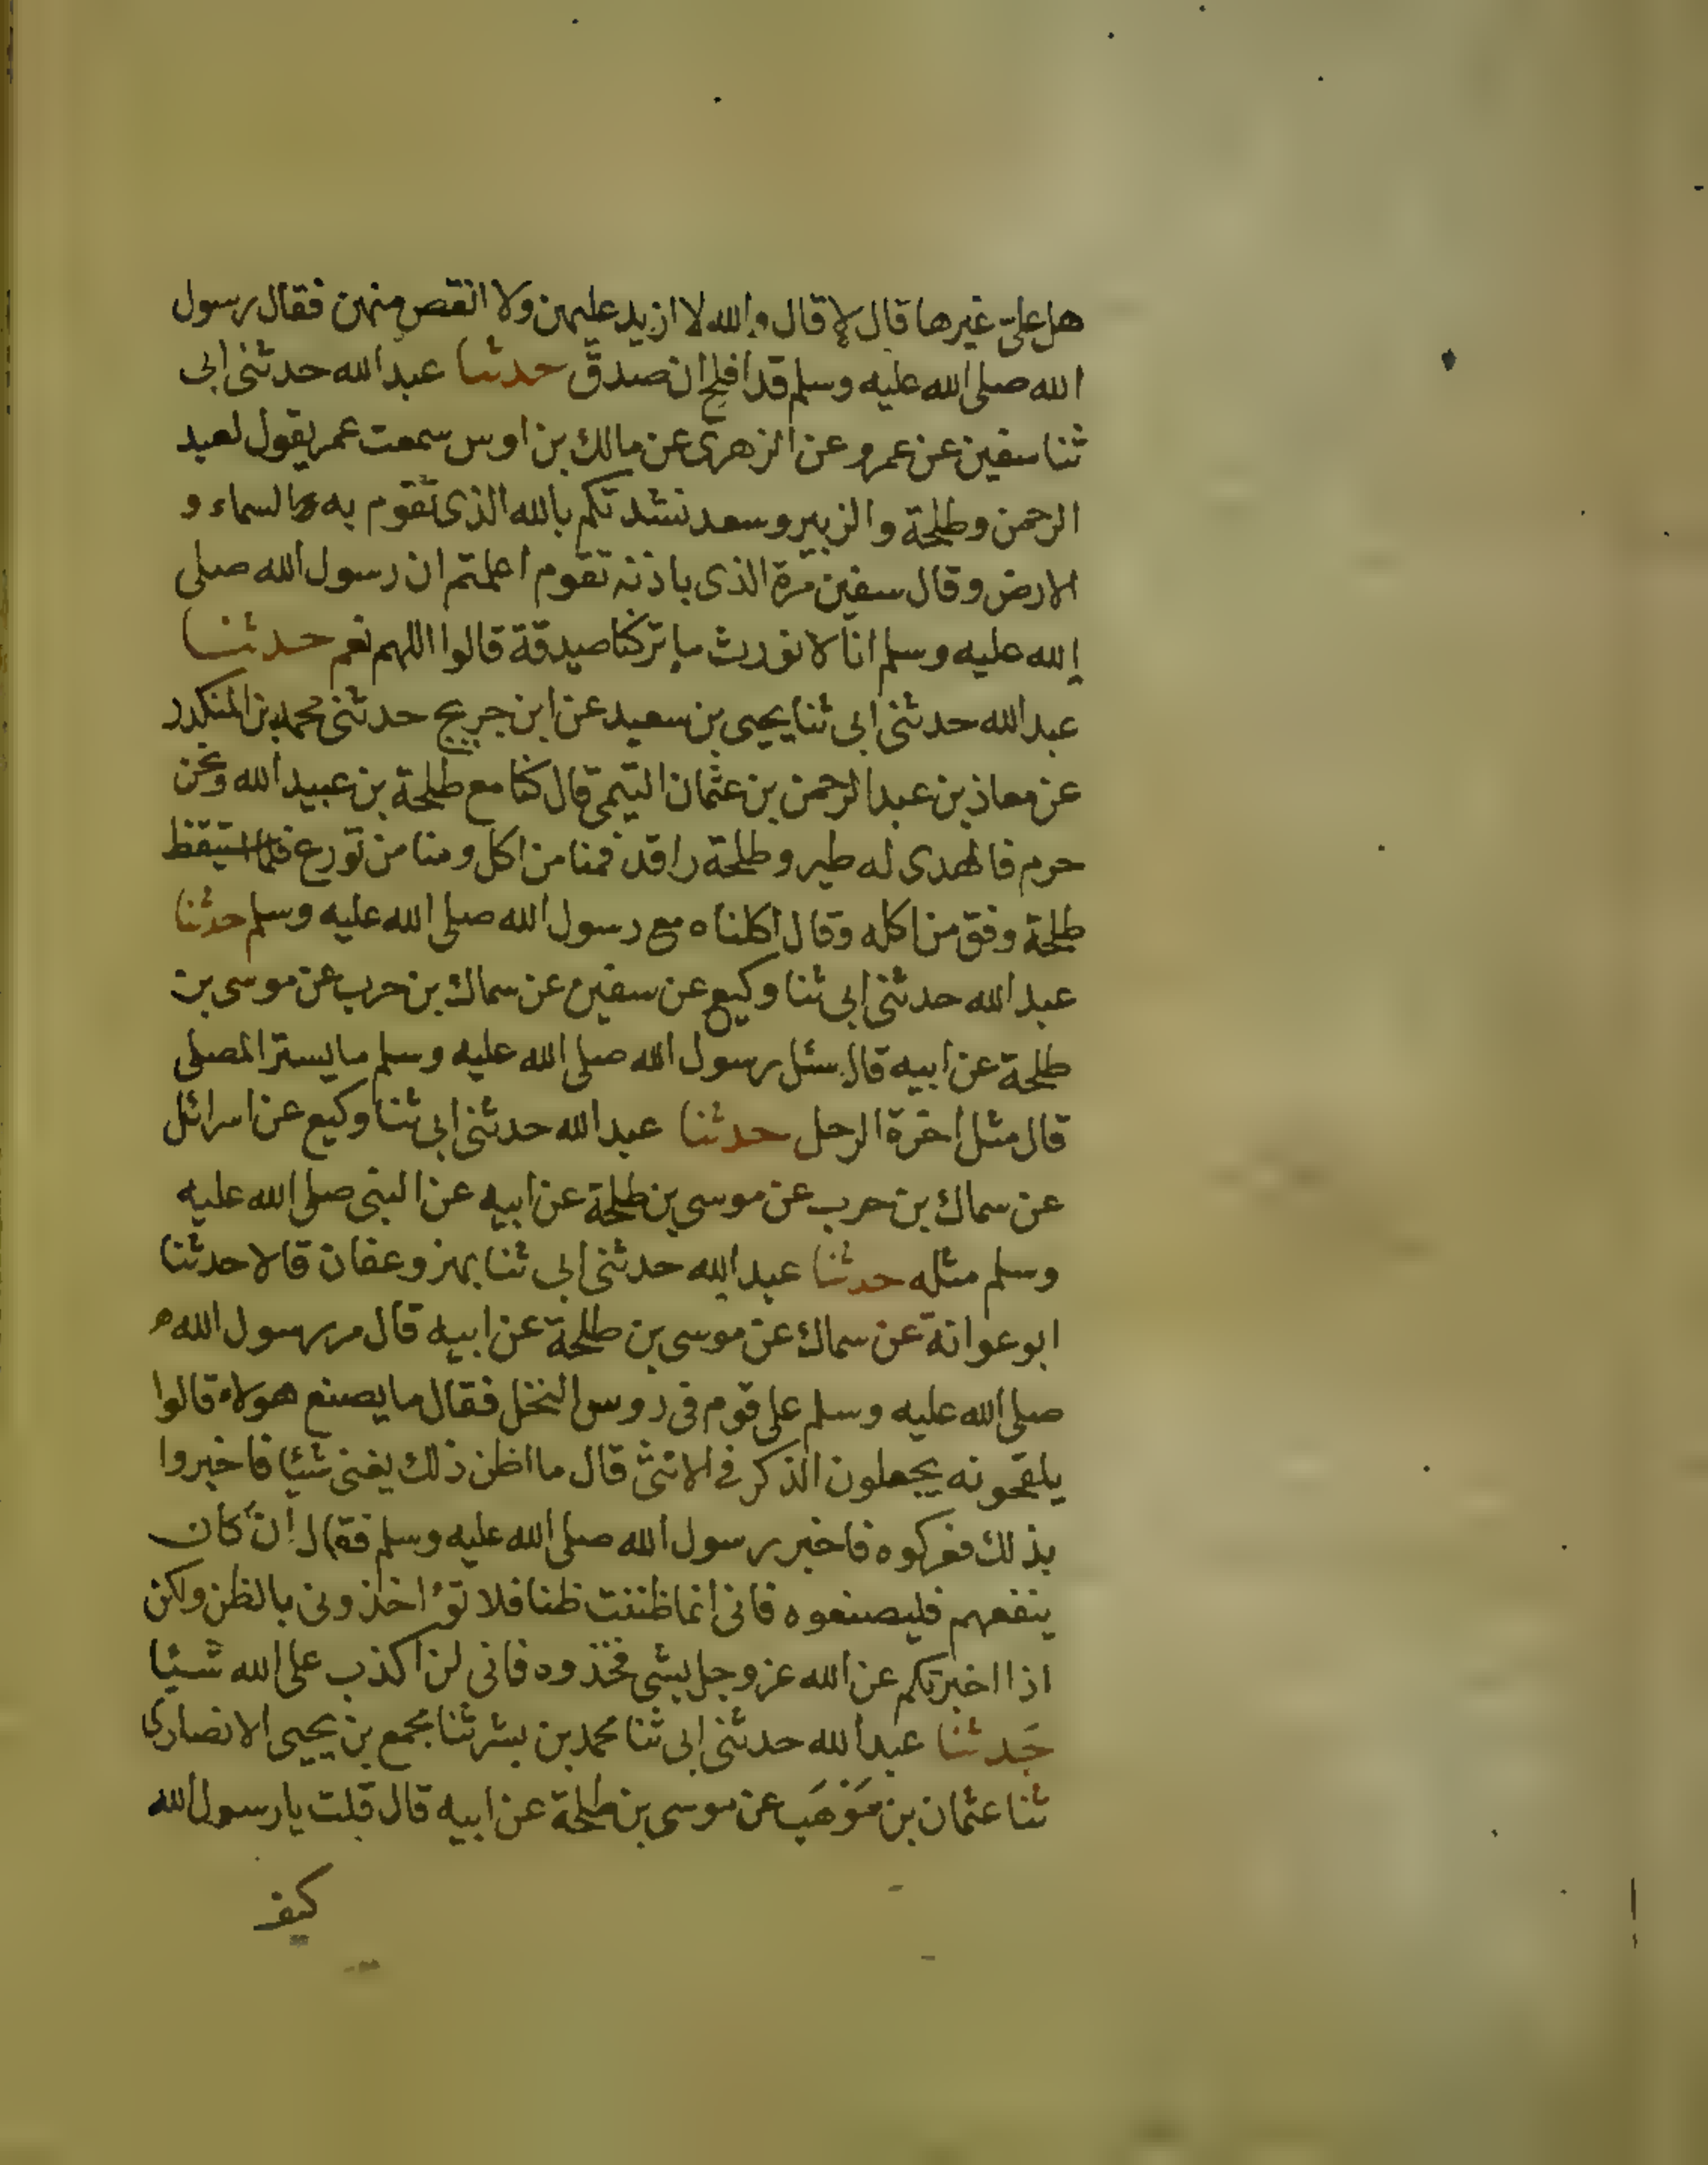 هل علىّ غيرها قال لا قال والله لا ازيد عليهن ولا انقص منهن فقال رسول
الله صلى الله عليه وسلم قد افلح ان صدق حدثنا عبد الله حدثنى ابى
ثنا سفين عن عمرو عن الزهرى عن مالك بن اوس سمعت عمر يقول لعبد
الرحمن وطلحة والزبير وسعد نشدتكم بالله الذى تقوم به السماء و
الارض وقال سفين مرة الذى باذنه تقوم اعلمتم ان رسول الله صلى
الله عليه وسلم انا لا نورث ما تركنا صدقة قالوا اللهم نعم حدثنا
عبد الله حدثنى ابى ثنا يحيى بن سعيد عن ابن جريج حدثنى محمد بن المنكدر
عن معاذ بن عبد الرحمن بن عثمان التيمى قال كنا مع طلحة بن عبيد الله ونحن
حرم فاهدى له طير وطلحة راقد فمنا من اكل ومنا من تورع فلما استيقظ
طلحة وفق من اكله وقال اكلناه مع رسول الله صلى الله عليه وسلم حدثنا
عبد الله حدثنى ابى ثنا وكيع عن سفين عن سماك بن حرب عن موسى بن
طلحة عن ابيه قال سئل رسول الله صلى الله عليه وسلم ما يستر المصلى
قال مثل اخرة الرحل حدثنا عبد الله حدثنى ابى ثنا وكيع عن اسرائل
عن سماك بن حرب عن موسى بن طلحة عن ابيه عن النبى صلى الله عليه
وسلم مثله حدثنا عبد الله حدثنى ابى ثنا بهز وعفان قالا حدثنا
ابو عوانة عن سماك عن موسى بن طلحة عن ابيه قال مر رسول الله
صلى الله عليه وسلم على قوم فى روس النخل فقال ما يصنع هولاء قالوا
يلقحونه يجعلون الذكر فى الانثى قال ما اظن ذلك يغنى شيئا فاخبروا
بذلك فتركوه فاخبر رسول الله صلى الله عليه وسلم فقال إن كان
ينفعهم فليصنعوه فانى انما ظننت ظنا فلا تؤاخذونى بالظن ولكن
اذا اخبرتكم عن الله عز وجل بشى فخذوه فانى لن اكذب على الله شيئا
حدثنا عبد الله حدثنى ابى ثنا محمد بن بشر ثنا مجمع بن يحيى الانصارى
ثنا عثمان بن مَوْهَب عن موسى بن طلحة عن ابيه قال قلت يا رسول الله
كيف